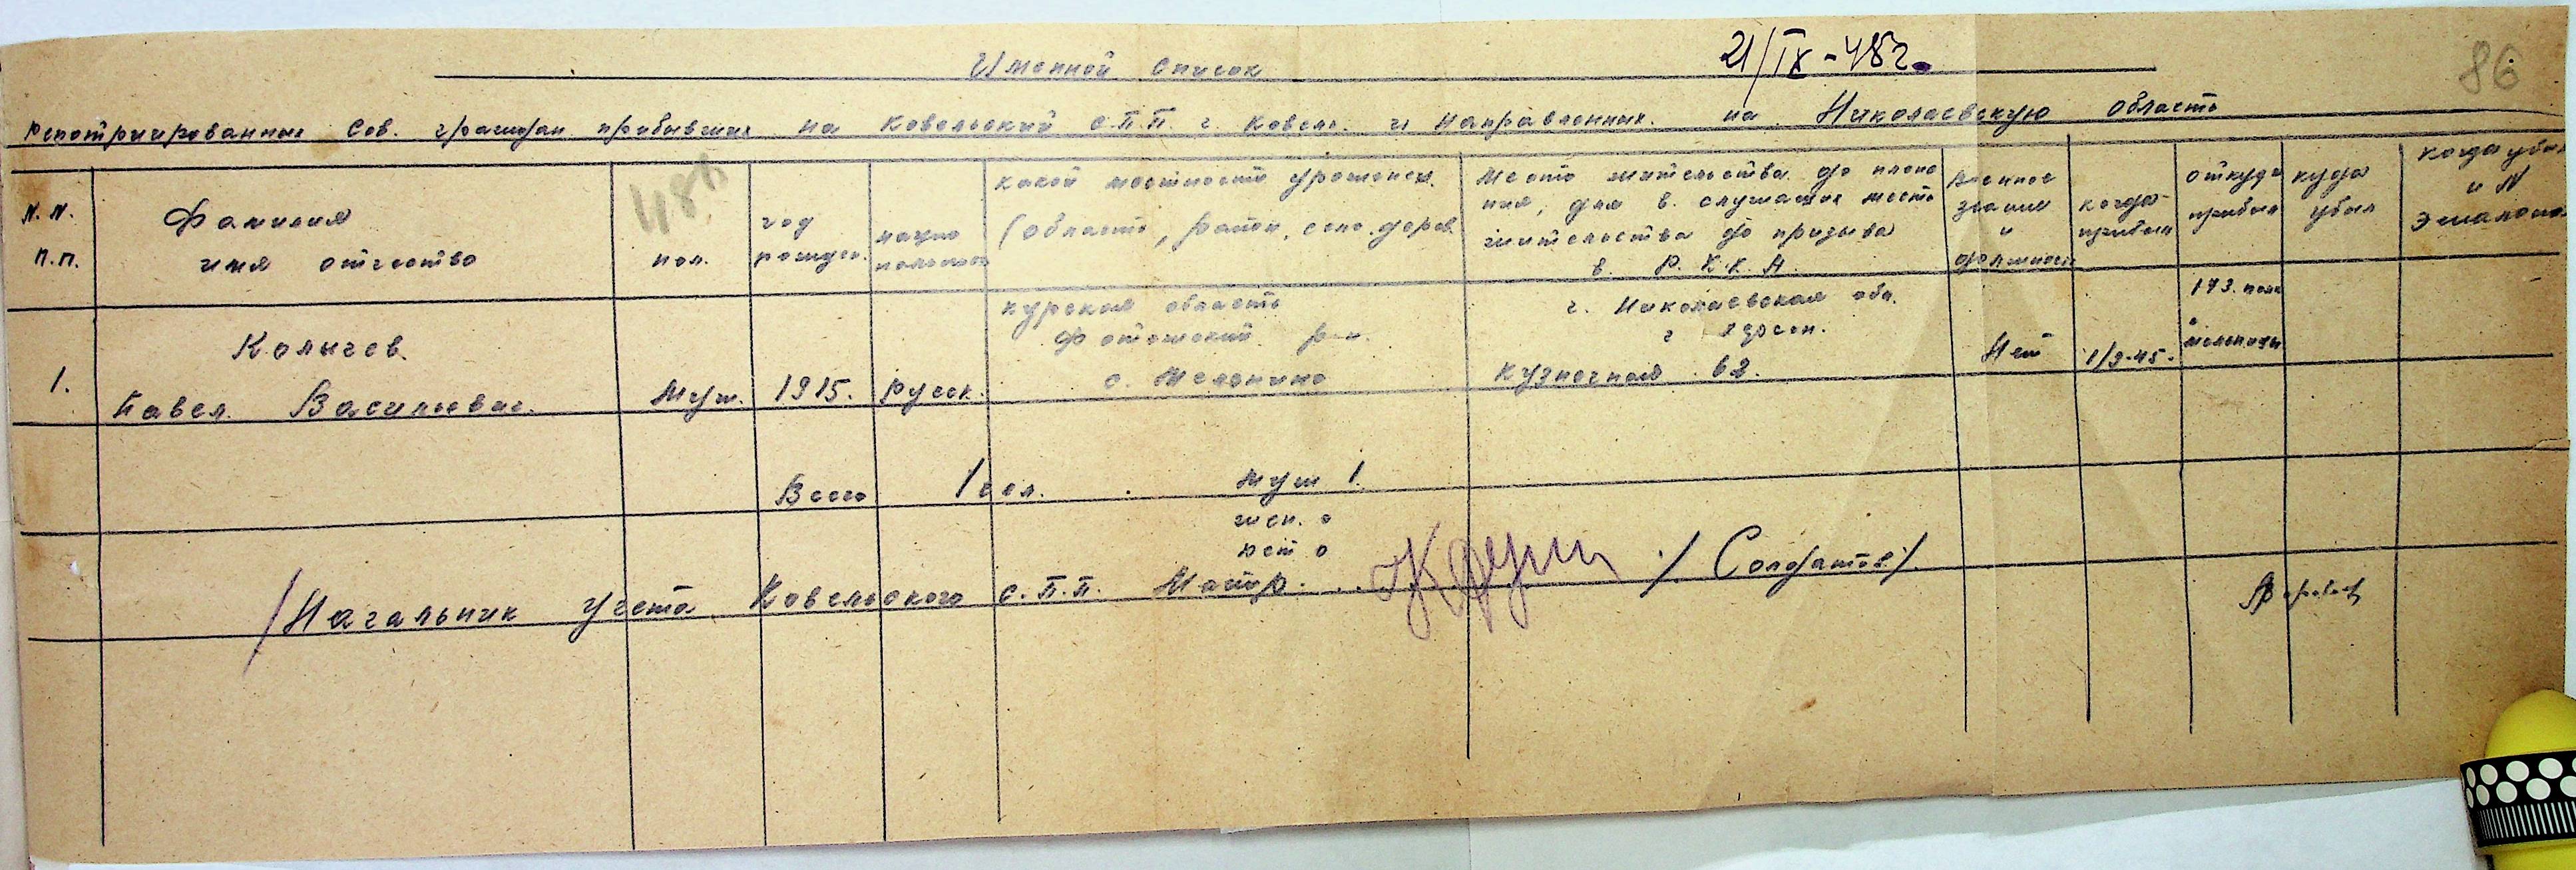 Именной список
21/IX-45г.
86
репатриированных Сов. граждан прибывших на Ковельский С.П.П. г. Ковель. и направленных. на Николаевскую область
N.N. п.п.
Фамилия
имя отчество
пол.
год рожден.
нацио нальность
какой местности уроженец.
(область, район, село. дерев.
Место жительства до плене
ния, для в. служащих место
жительства до призыва
в. Р.К.К.А.
Военное звание и должность
когда прибыл
откуда прибыл
куда убыл
когда убыл и N эшалона
1.
Колычев.
Павел. Васильевич.
Муж.
1915.
Русск.
Курская область
Фатежский р-н.
с. Меленино
г. Николаевская обл.
г Херсон.
Кузнечная 62.
Нет
1/9-45.
173. полк
Всего 1 чел. Муж 1.
жен. 0
дет 0
/Начальник учета. Ковельского С.П.П. Майор. /Солдатов/.